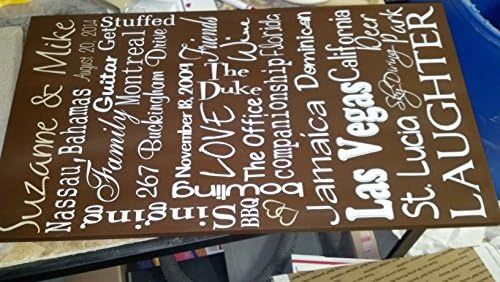 Suzanne & Mike
Nassau, Bahamas August 20, 2014
Family Guitar Get Stuffed
Montreal
267 Buckingham Drive
November 18, 2009 Friends
LOVE The Duke Wine
BBQ The Office
companionship Floatie
Jamaica Dominican
Las Vegas California
St. Lucia Sky Diving Deer Park
LAUGHTER